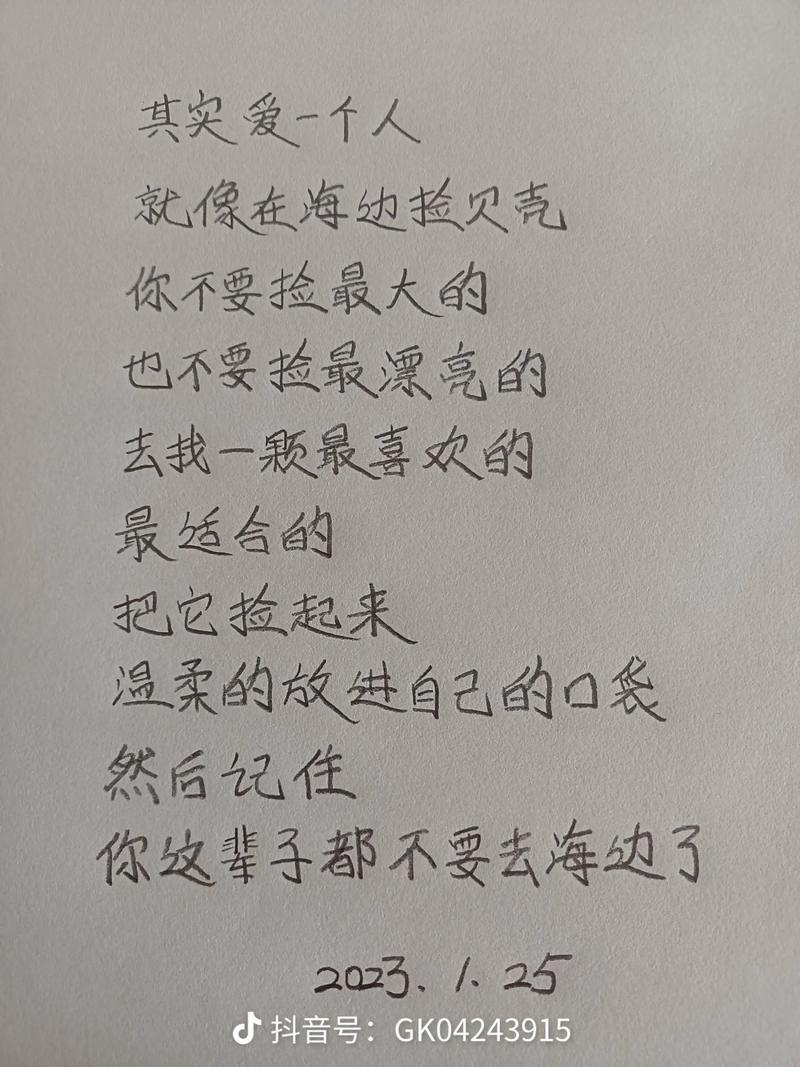 其实爱一个人
就像在海边捡贝壳
你不要捡最大的
也不要捡最漂亮的
去找一颗最喜欢的
最适合的
把它捡起来
温柔的放进自己的口袋
然后记住
你这辈子都不要去海边了
2023.1.25
抖音号：GK04243915